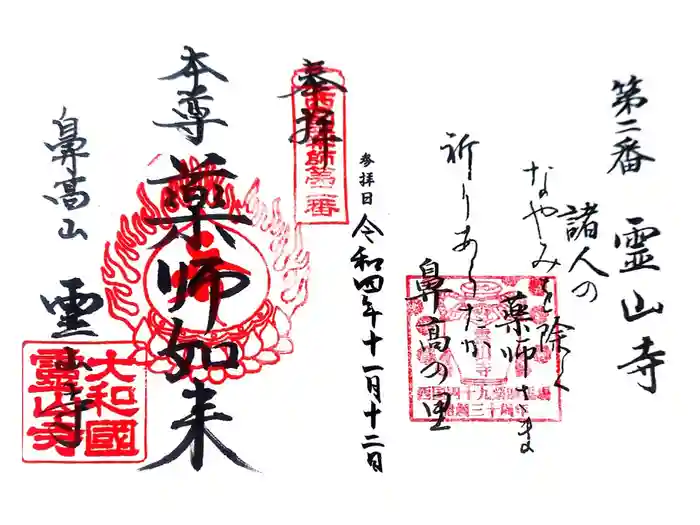 第二番 霊山寺
諸人の
なやみを除く
薬師さま
祈りあらたか
鼻高の里
参拝日 令和四年十一月十二日
奉拝
西国薬師第二番
本尊 薬師如来
鼻高山 霊山寺
大和國
霊山寺